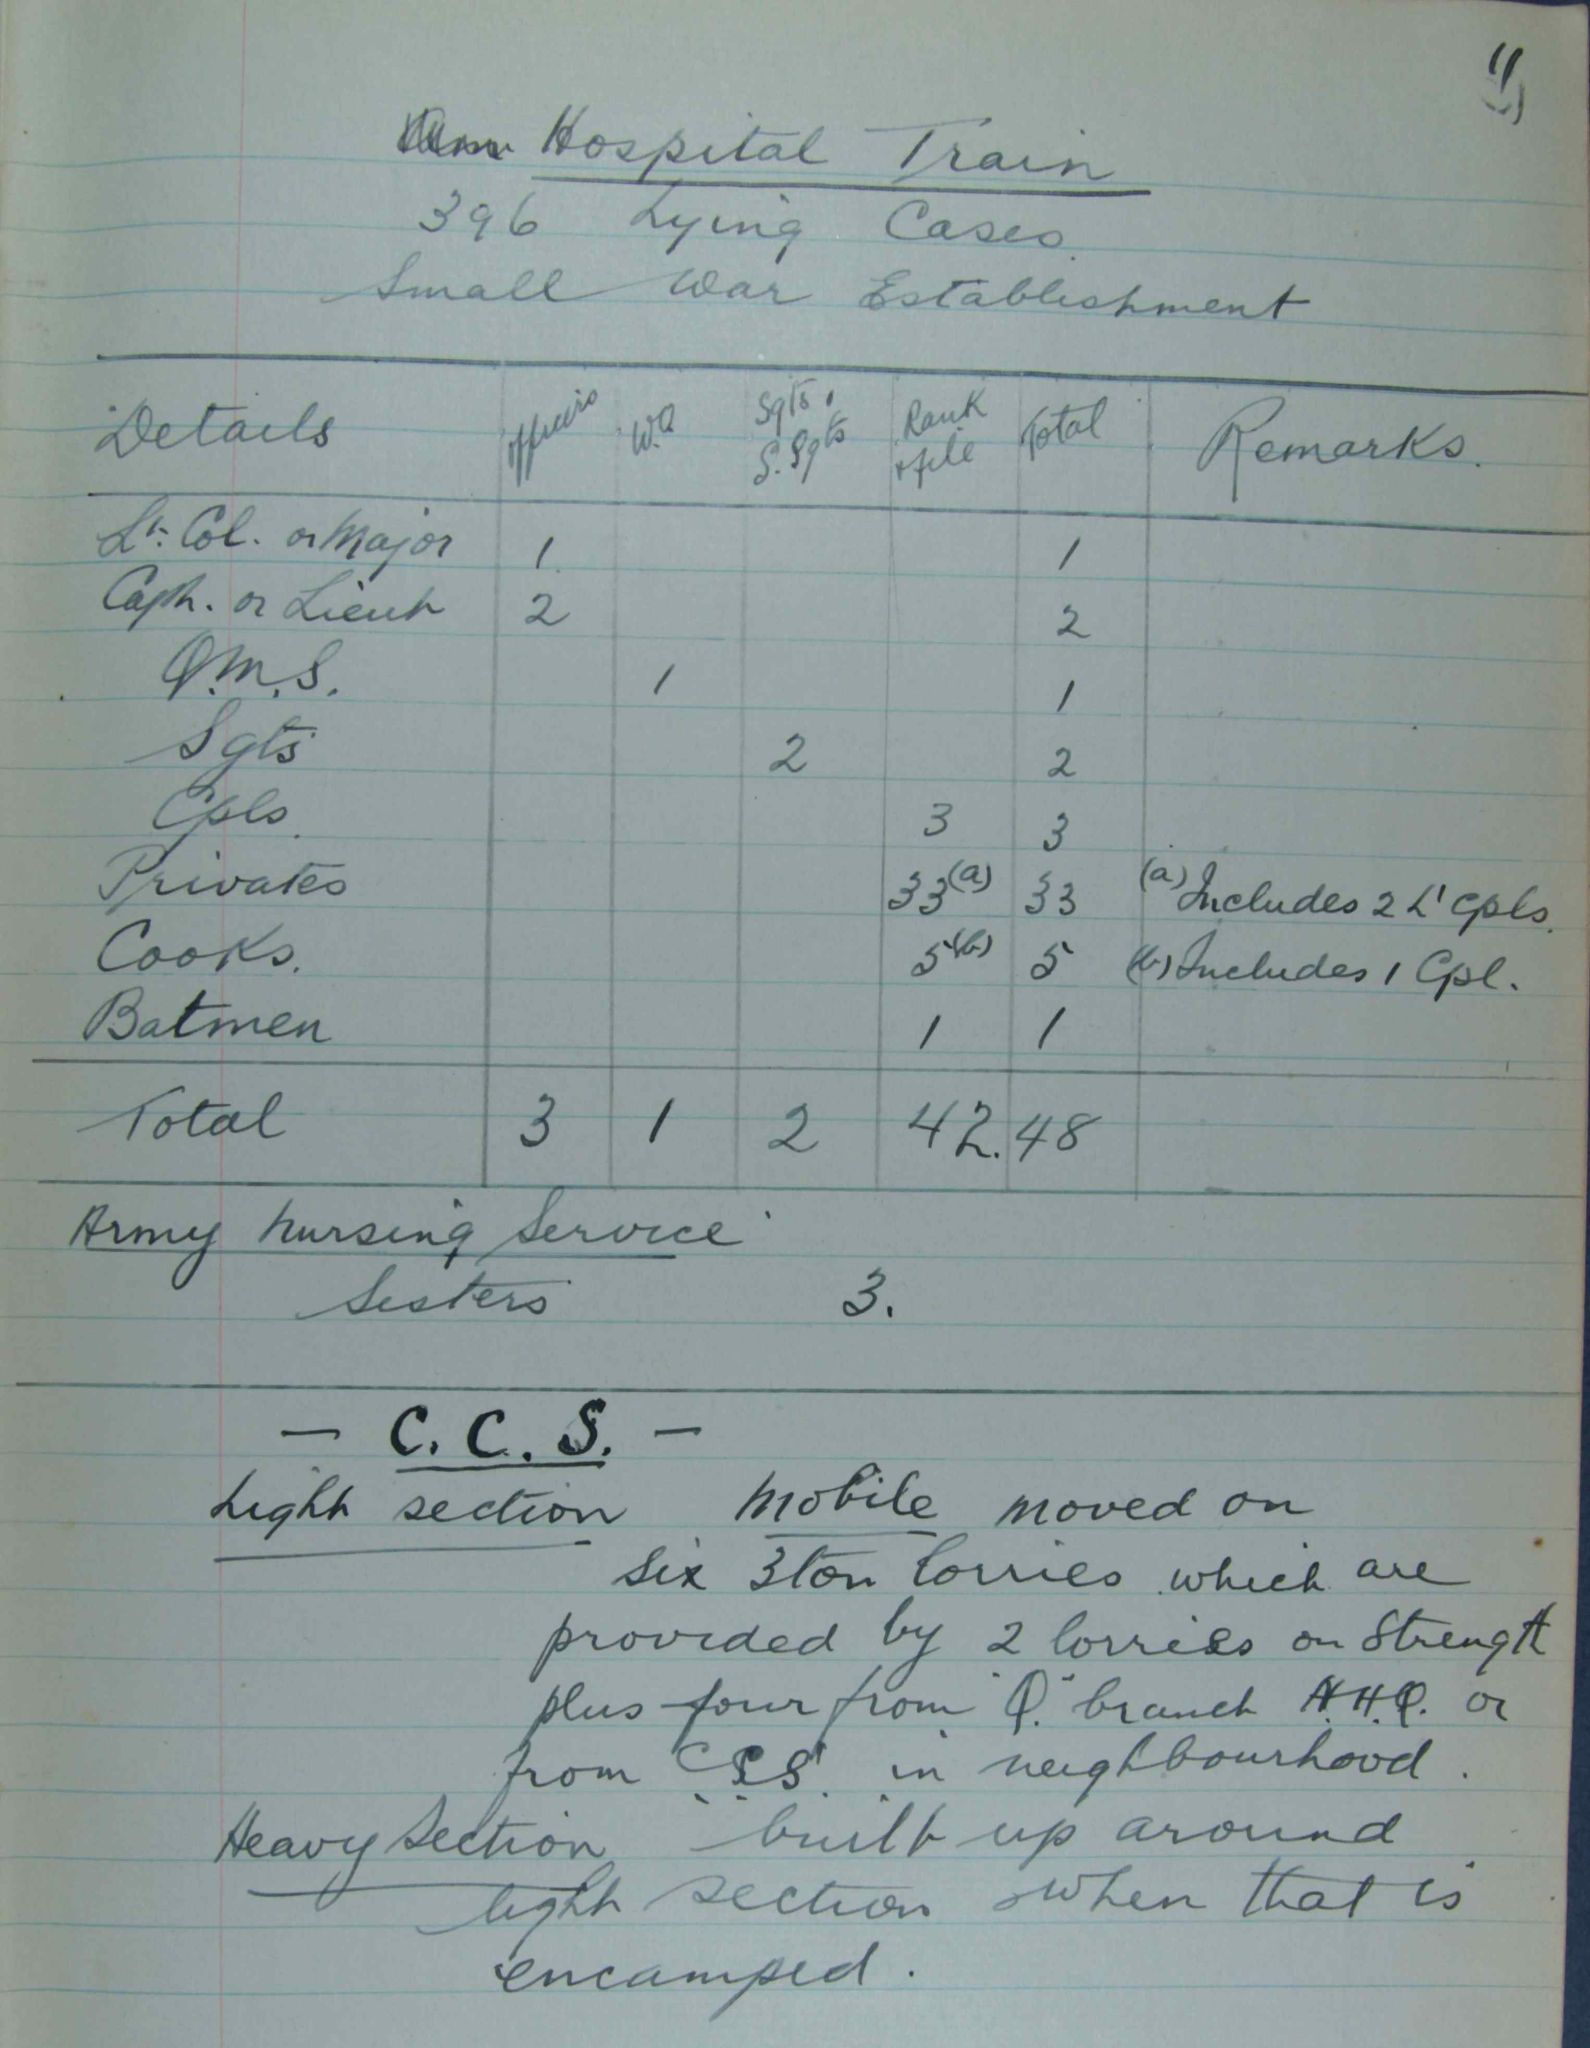 Hospital Train
396 Lying Cases
Small War Establishment
Details Officers W.O Sgts. S. Sgts Rank & file Total Remarks.
Lt. Col. or Major 1 1
Capt. or Lieut 2 2
Q.M.S. 1 1
Sgts 2 2
Cpls. 3 3
Privates 33(a) 33 (a) Includes 2 L' Cpls.
Cooks. 5(b) 5 (b) Includes 1 Cpl.
Batmen 1 1
Total 3 1 2 42. 48
Army Nursing Service
Sisters 3.
- C. C. S. -
Light section mobile moved on
six 3 ton lorries which are
provided by 2 lorries on Strength
plus four from "Q." branch A.H.Q. or
from in neighbourhood.
Heavy Section built up around
light section when that is
encamped.